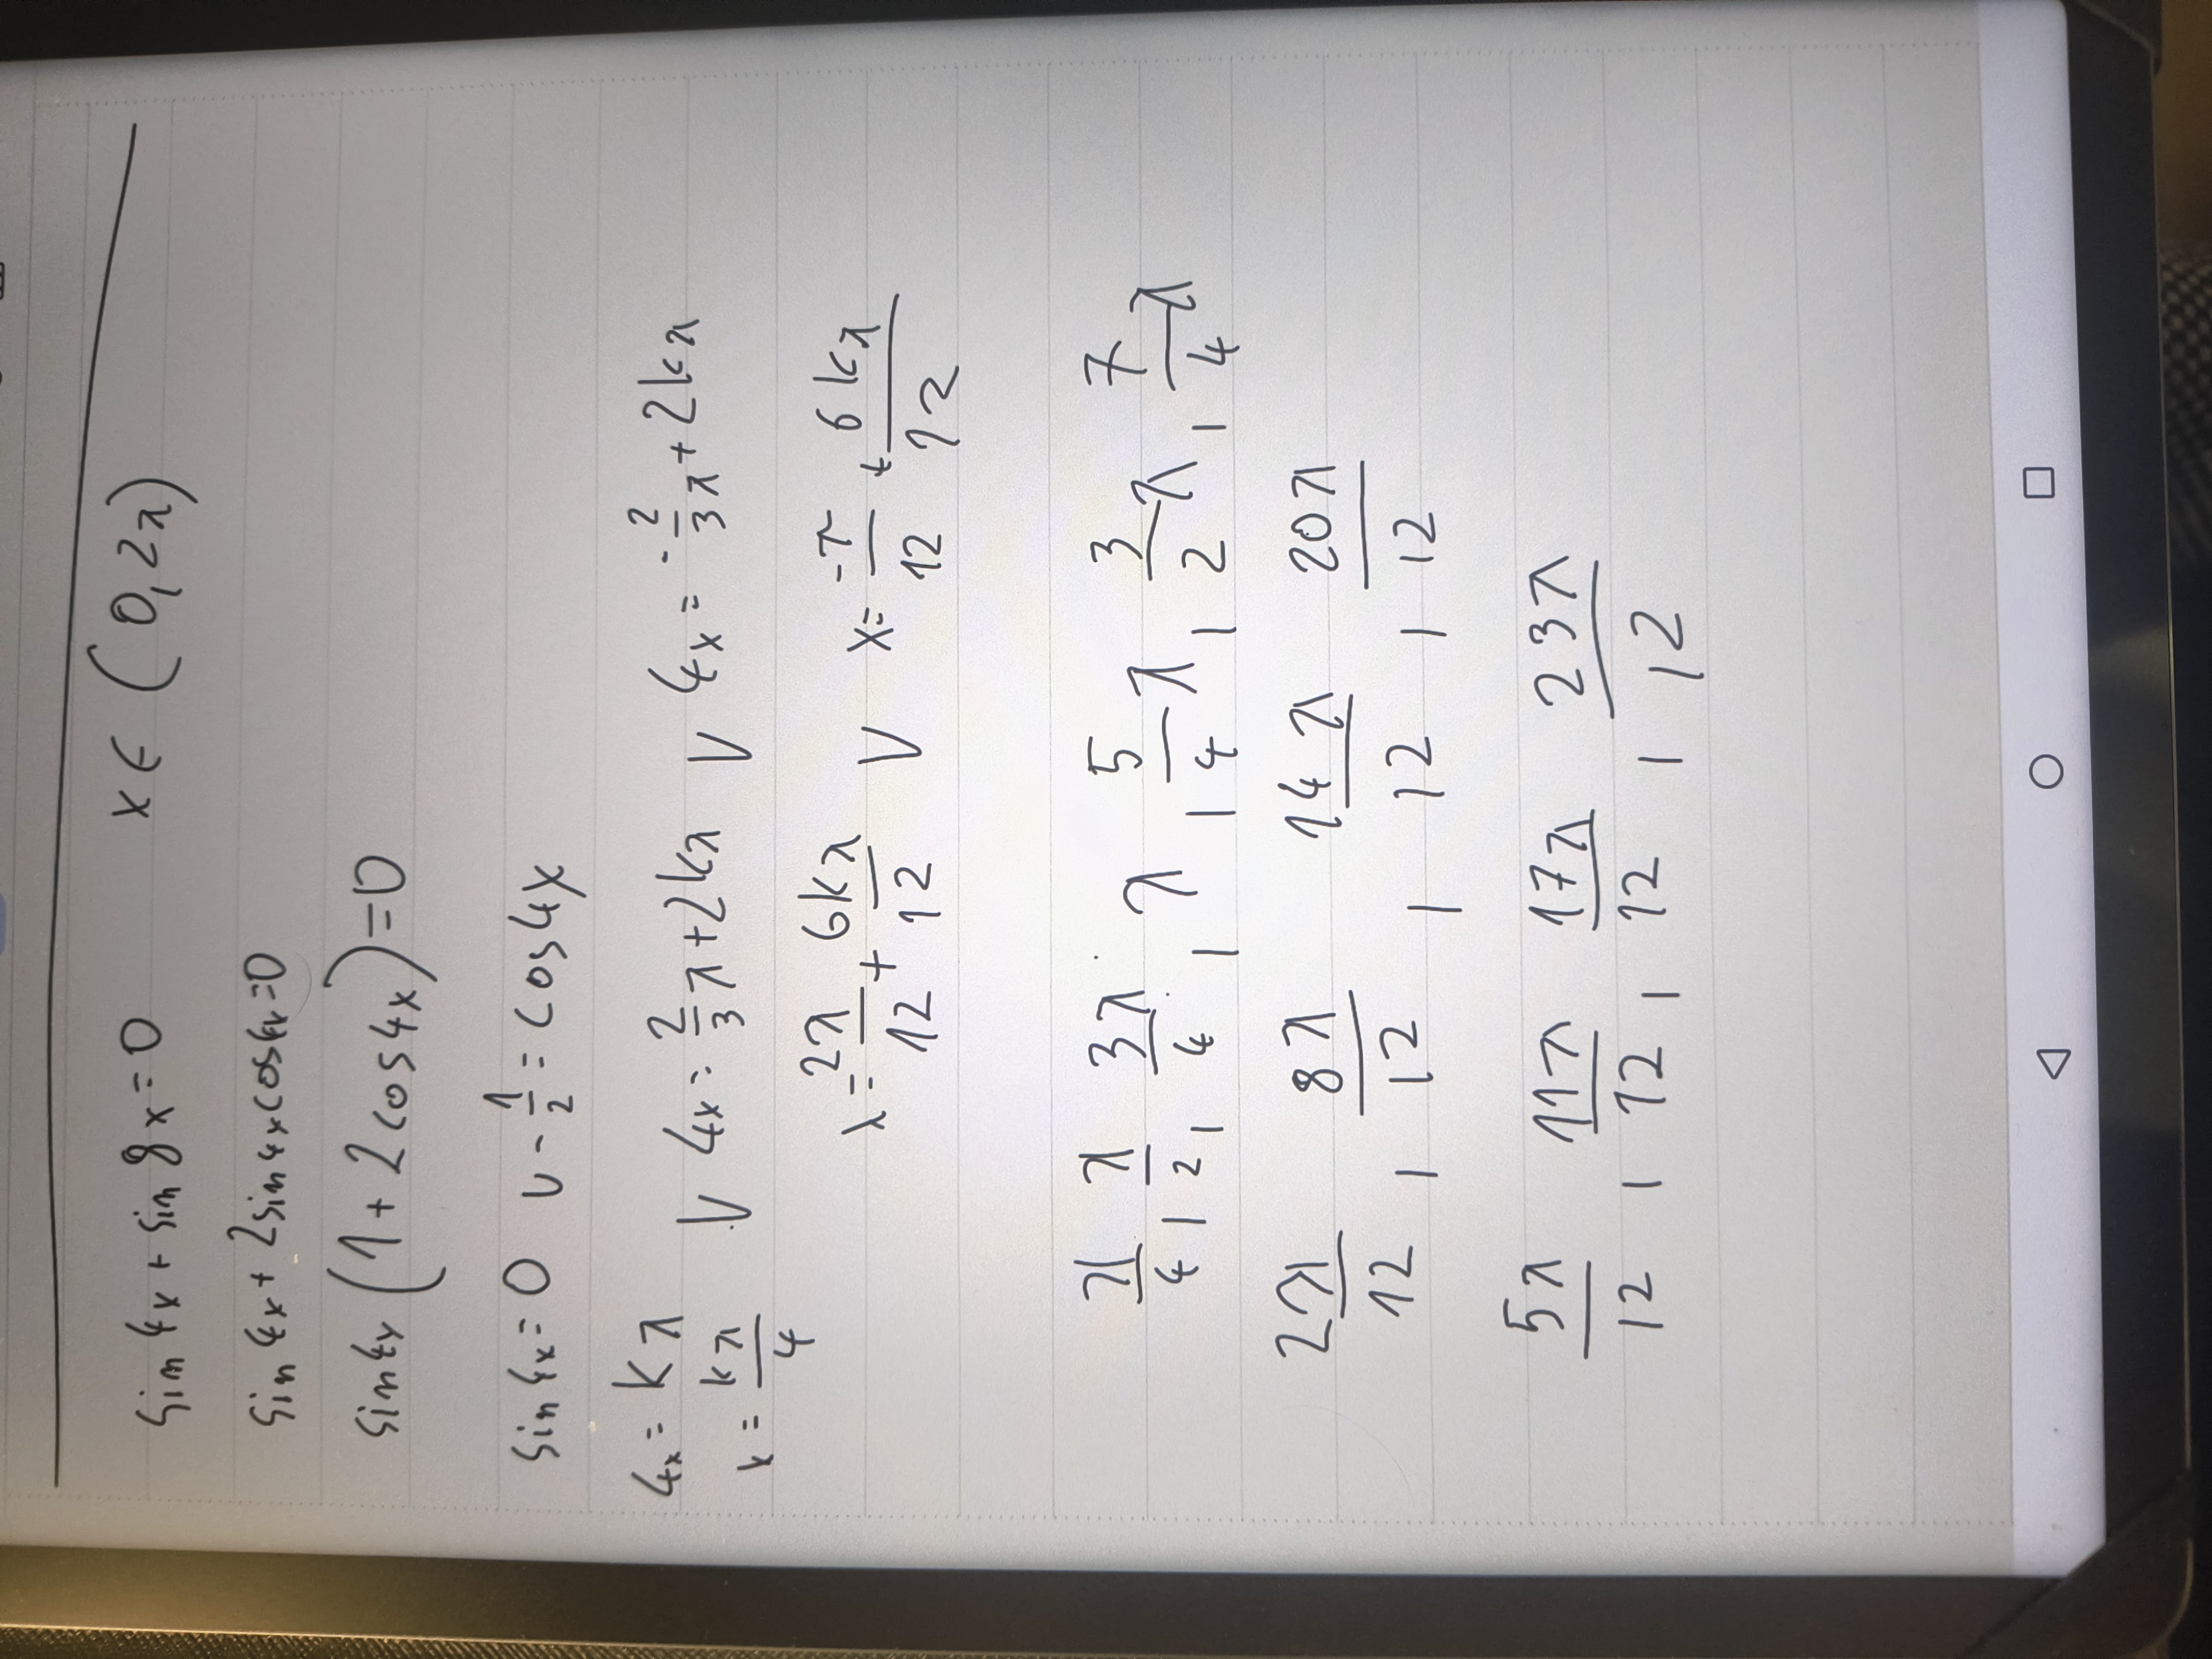 sin 4x + sin 8x = 0 x ∈ (0, 2π)
sin 4x + 2 sin 4x cos 4x = 0
sin 4x (1 + 2 cos 4x) = 0
sin 4x = 0 ∨ -1/2 = cos 4x
4x = kπ ∨ 4x = 2/3 π + 2kπ ∨ 4x = -2/3 π + 2kπ
x = kπ/4 x = 2π/12 + 6kπ/12 ∨ x = -π/12 + 6kπ/12
π/4, π/2, 3π/4, π, 5/4 π, 3/2 π, 7/4 π
2π/12, 8π/12, 14π/12, 20π/12
5π/12, 11π/12, 17π/12, 23π/12